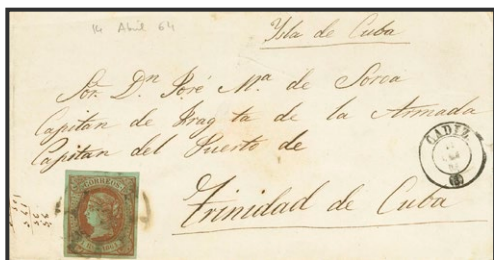 14 Abril 64
Ysla de Cuba
Sor. Dn. José Ma. de Soroa
Capitan de Frag ta de la Armada
Capitan del Puerto de
Trinidad de Cuba
CADIZ
CORREOS